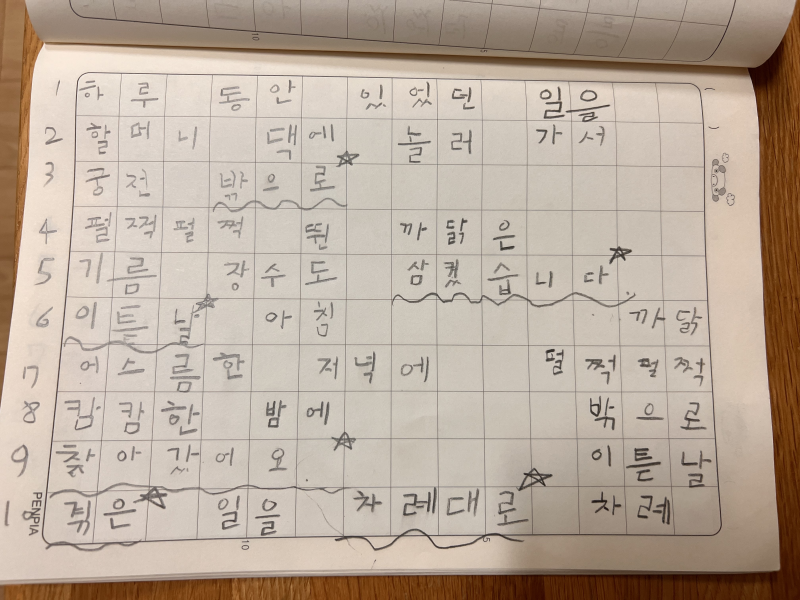 1 하루 동안 있었던 일을
2 할머니 댁에 놀러 가서
3 궁전 밖으로
4 펄쩍펄쩍 뛴 까닭은
5 기름 장수도 삼켰습니다
6 이튿날 아침 까닭
7 어스름한 저녁에 펄쩍펄쩍
8 캄캄한 밤에 밖으로
9 찾아가어오 이튿날
10 쥐은 일을 차례대로 차례
PENPIA
10
5